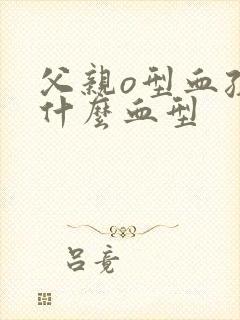 父親o型血孩
什麼血型
呂竟